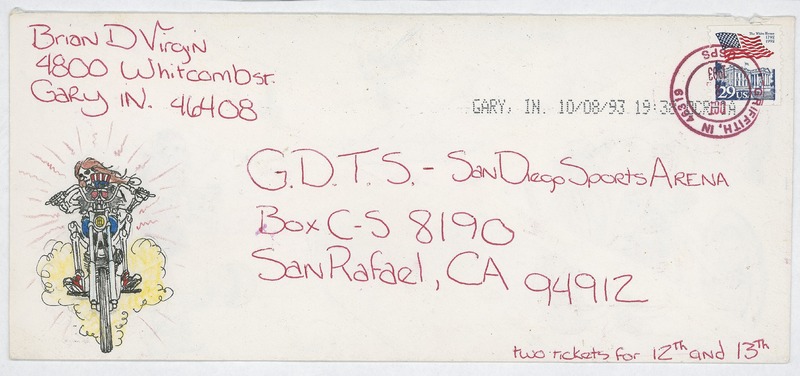 Brian D Virgin
4800 Whitcomb st.
Gary IN. 46408
The White House
1792
1992
29 USA
GRIFFITH, IN 46319
USPS
1993
GARY, IN. 10/08/93 19:38
G.D.T.S. - San Diego Sports ARENA
Box C-S 8190
San Rafael, CA 94912
two tickets for 12Th and 13Th